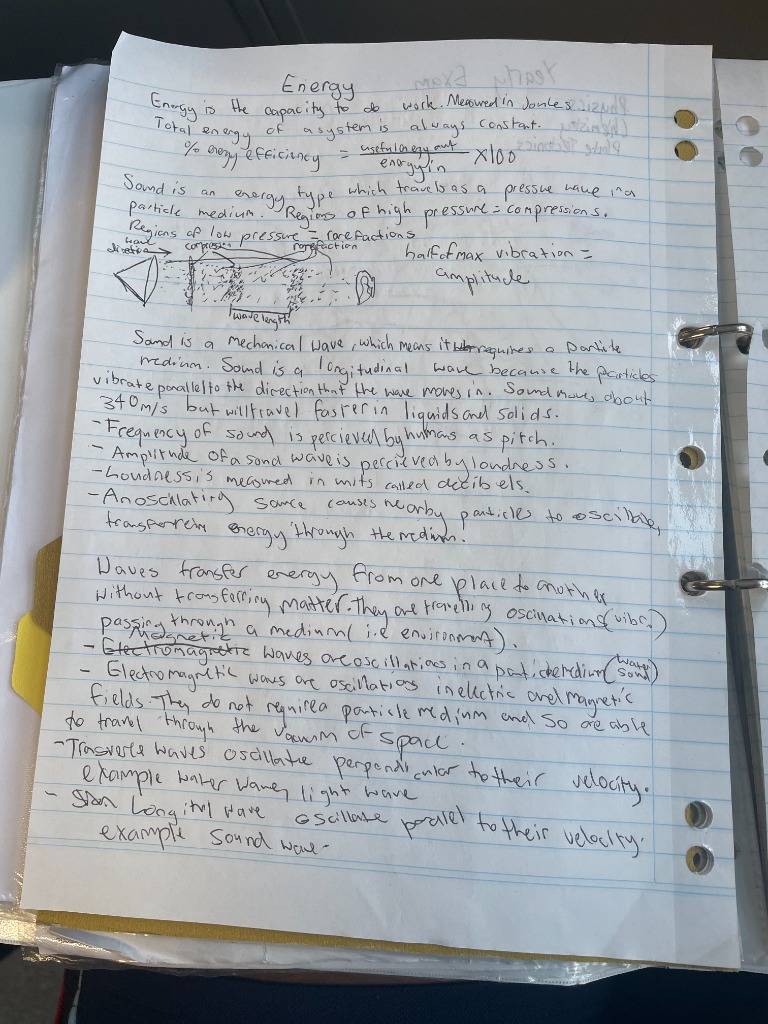 Energy
Energy is the capacity to do work. Measured in Joules
Total energy of a system is always constant.
% energy efficiency = useful energy out / energy in X100
Sound is an energy type which travels as a pressure wave in a
particle medium. Regions of high pressure = compressions.
Regions of low pressure = rarefactions
wave direction compression rarefaction
half of max vibration =
amplitude
wavelength
Sound is a mechanical wave, which means it requires a particle
medium. Sound is a longitudinal wave because the particles
vibrate parallel to the direction that the wave moves in. Sound moves about
340m/s but will travel faster in liquids and solids.
- Frequency of sound is percieved by humans as pitch.
- Amplitude of a sound wave is percieved by loudness.
- Loudness is measured in units called decibels.
- An oscillating source causes nearby particles to oscillate,
energy through the medium.
Waves transfer energy from one place to another
without transferring matter. They are travelling oscillations (vibr.)
passing through a medium (i.e environment).
- Electromagnetic Magnetic waves are oscillations in a particle medium (water sound)
- Electromagnetic waves are oscillations in electric and magnetic
fields. They do not require a particle medium and so are able
to travel through the vacuum of space.
- Trasverse waves oscillate perpendicular to their velocity.
example water wave, light wave
- wave oscillate parallel to their velocity.
example sound wave-
Yearly Exam
Physics
Chemistry
Plate Tectonics